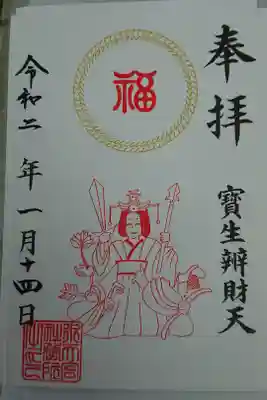 奉拝
福
寶生辨財天
令和二年一月十四日